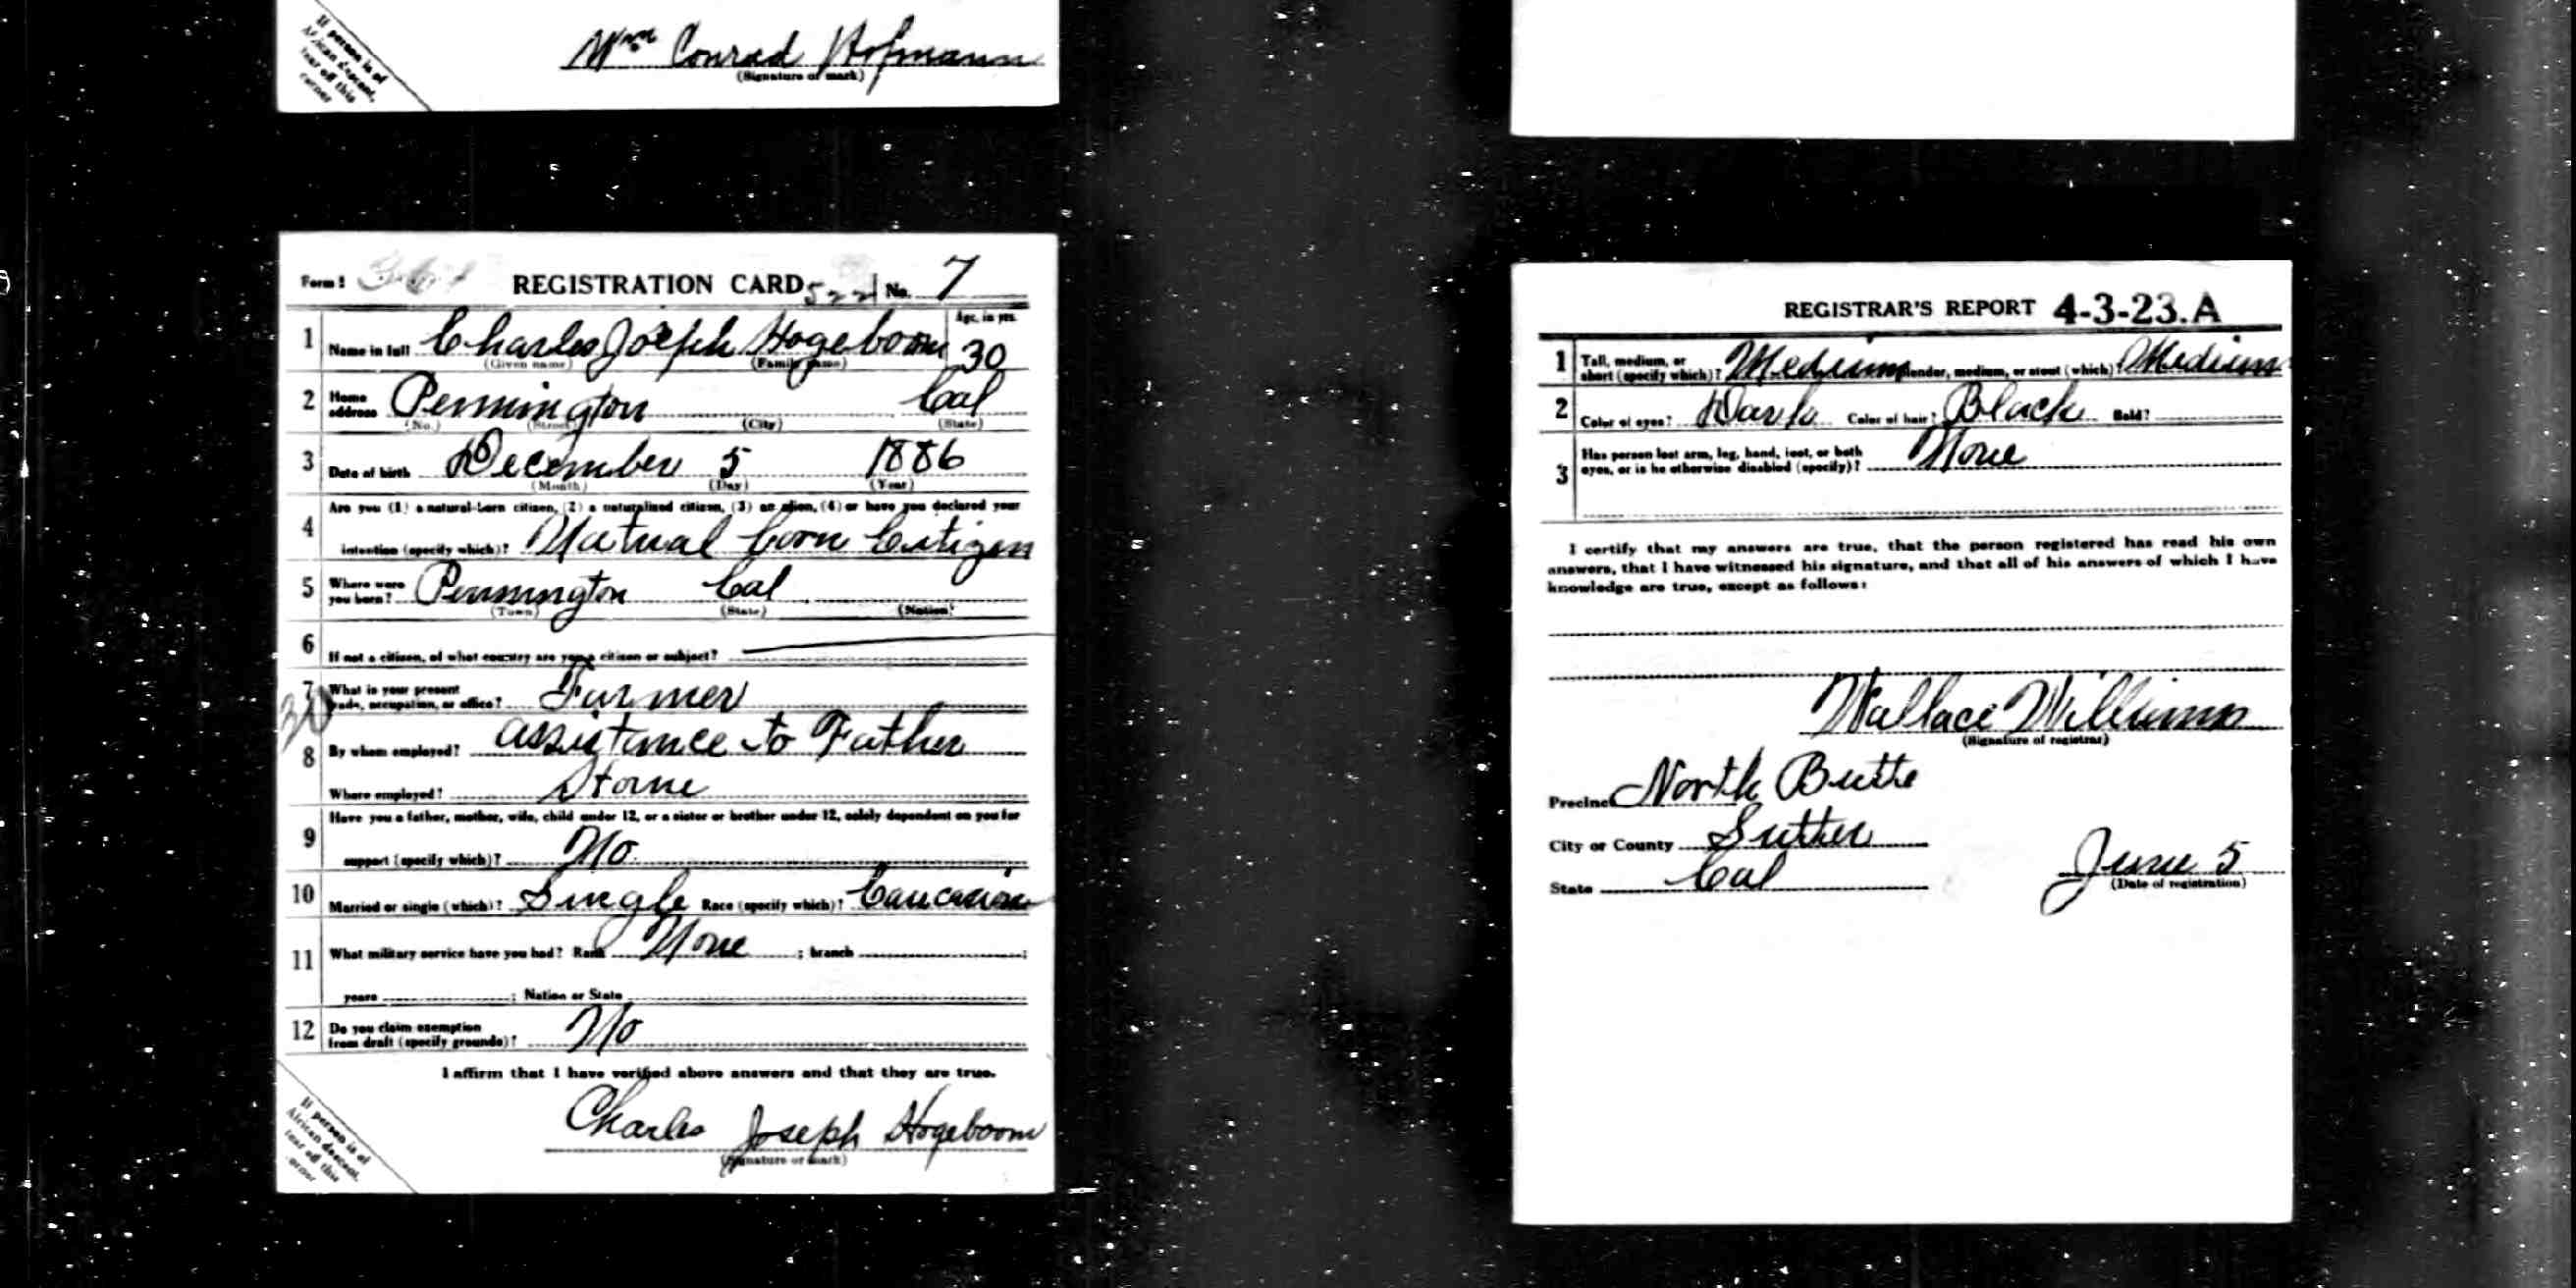 If person is of
African descent,
tear off this
corner
Wm Conrad Hofmann
(Signature or mark)
Form 1 REGISTRATION CARD 522 No. 7
1 Name in full Charles Joseph Hogeboom Age, in yrs. 30
(Given name) (Family name)
2 Home address Pennington Cal
(No.) (Street) (City) (State)
3 Date of birth December 5 1886
(Month) (Day) (Year)
4 Are you (1) a natural-born citizen, (2) a naturalized citizen, (3) an alien, (4) or have you declared your
intention (specify which)? Natual born Citizen
5 Where were you born? Pennington Cal
(Town) (State) (Nation)
6 If not a citizen, of what country are you a citizen or subject?
7 What is your present trade, occupation, or office? Farmer
8 By whom employed? assistance to Father
Where employed? Home
9 Have you a father, mother, wife, child under 12, or a sister or brother under 12, solely dependent on you for
support (specify which)? No
10 Married or single (which)? Single Race (specify which)? Caucasian
11 What military service have you had? Rank None ; branch ;
years ; Nation or State
12 Do you claim exemption from draft (specify grounds)? No
I affirm that I have verified above answers and that they are true.
Charles Joseph Hogeboom
(Signature or mark)
If person is of
African descent,
tear off this
corner
REGISTRAR'S REPORT 4-3-23.A
1 Tall, medium, or short (specify which)? Medium Slender, medium, or stout (which)? Medium
2 Color of eyes? Dark Color of hair? Black Bald?
3 Has person lost arm, leg, hand, foot, or both
eyes, or is he otherwise disabled (specify)? None
I certify that my answers are true, that the person registered has read his own
answers, that I have witnessed his signature, and that all of his answers of which I have
knowledge are true, except as follows:
Wallace Williams
(Signature of registrar)
Precinct North Butte
City or County Sutter
State Cal
June 5
(Date of registration)